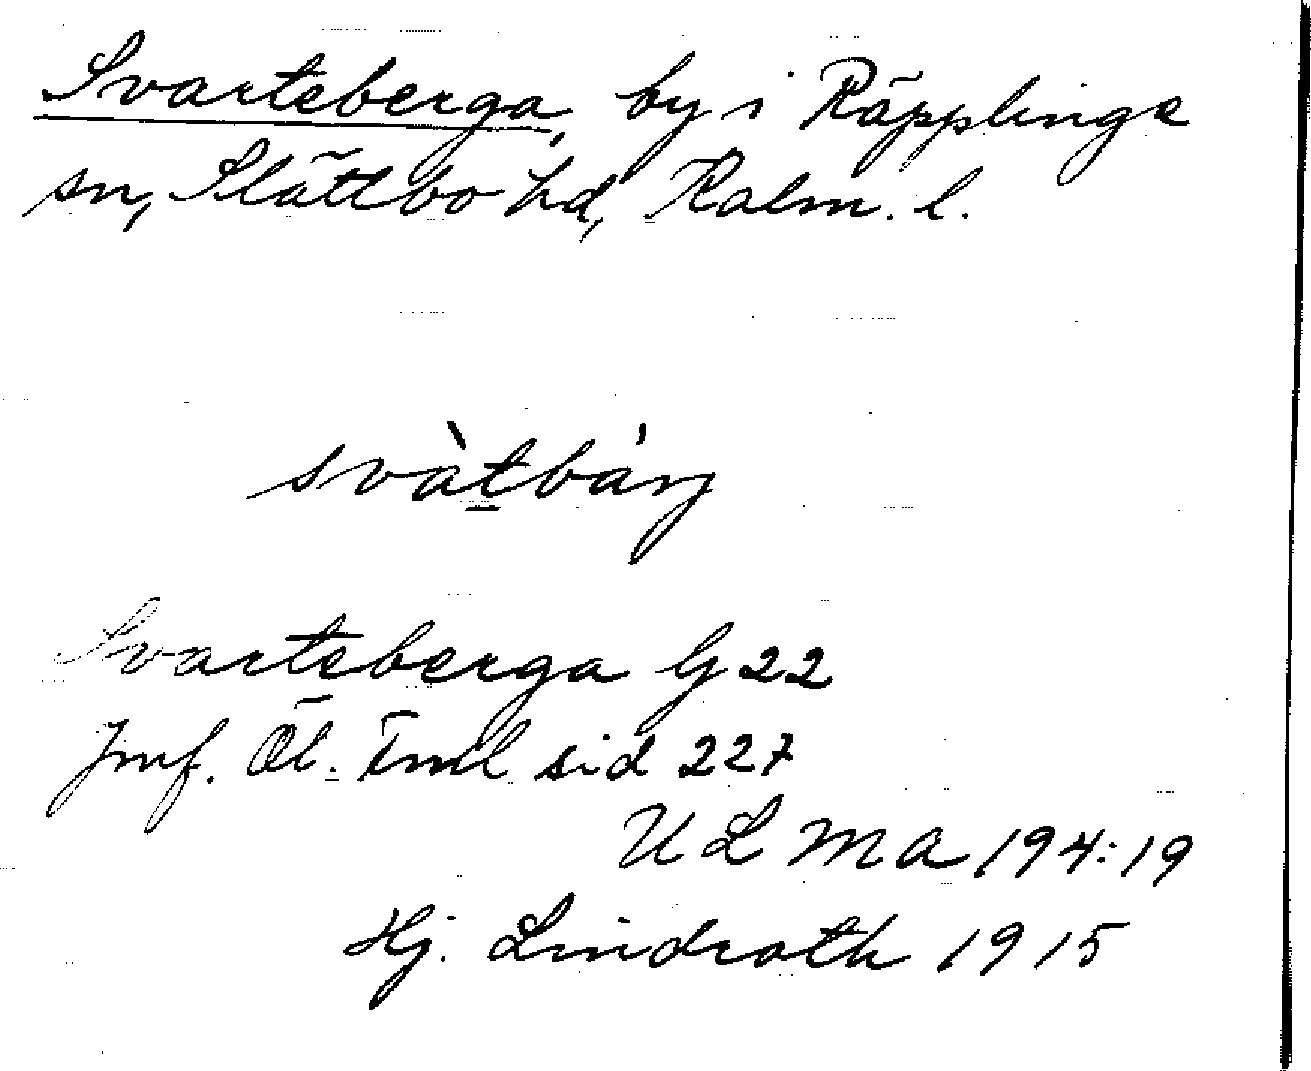 Svarteberga, by i Räpplinge
sn, Slättbo hd, Kalm. l.
svàtbárj
Svarteberga G 22
Jmf. Öl. Fml sid 227
ULMA 194:19
Hj. Lindroth 1915